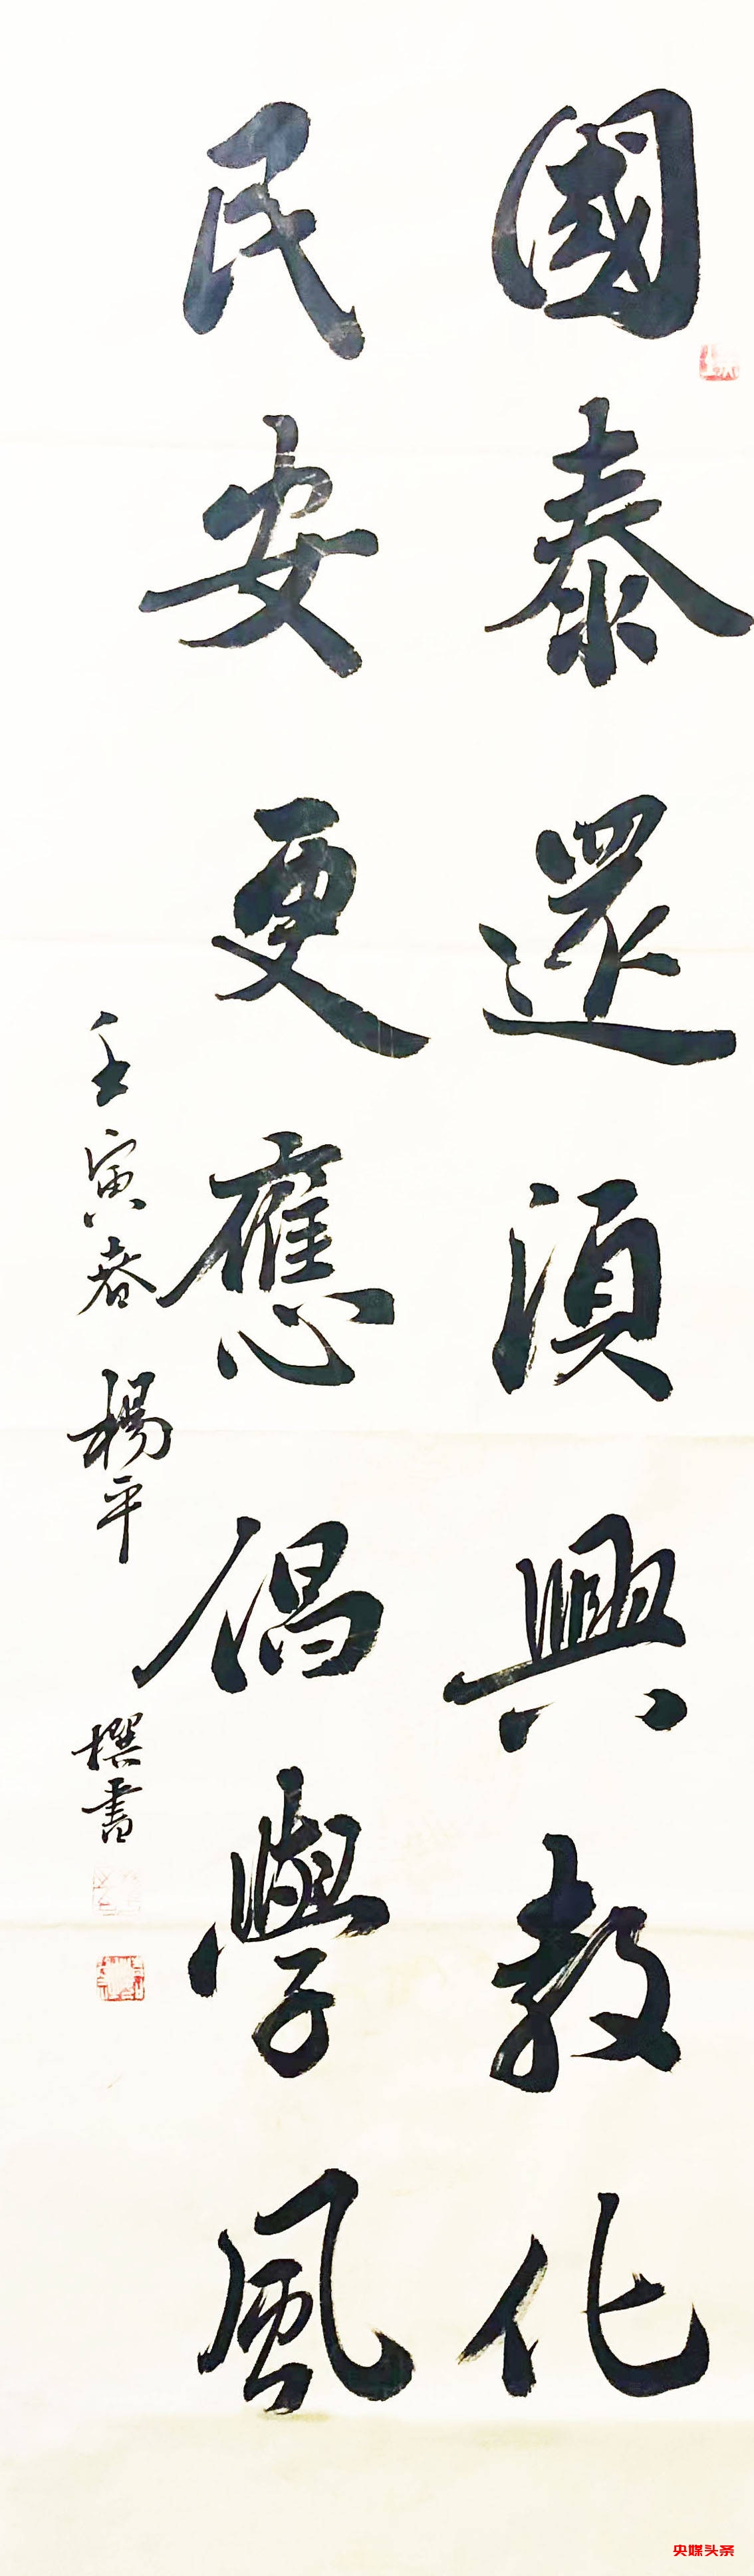 國泰還須興教化
民安更應倡學風
壬寅春 楊平 撰書
央媒头条